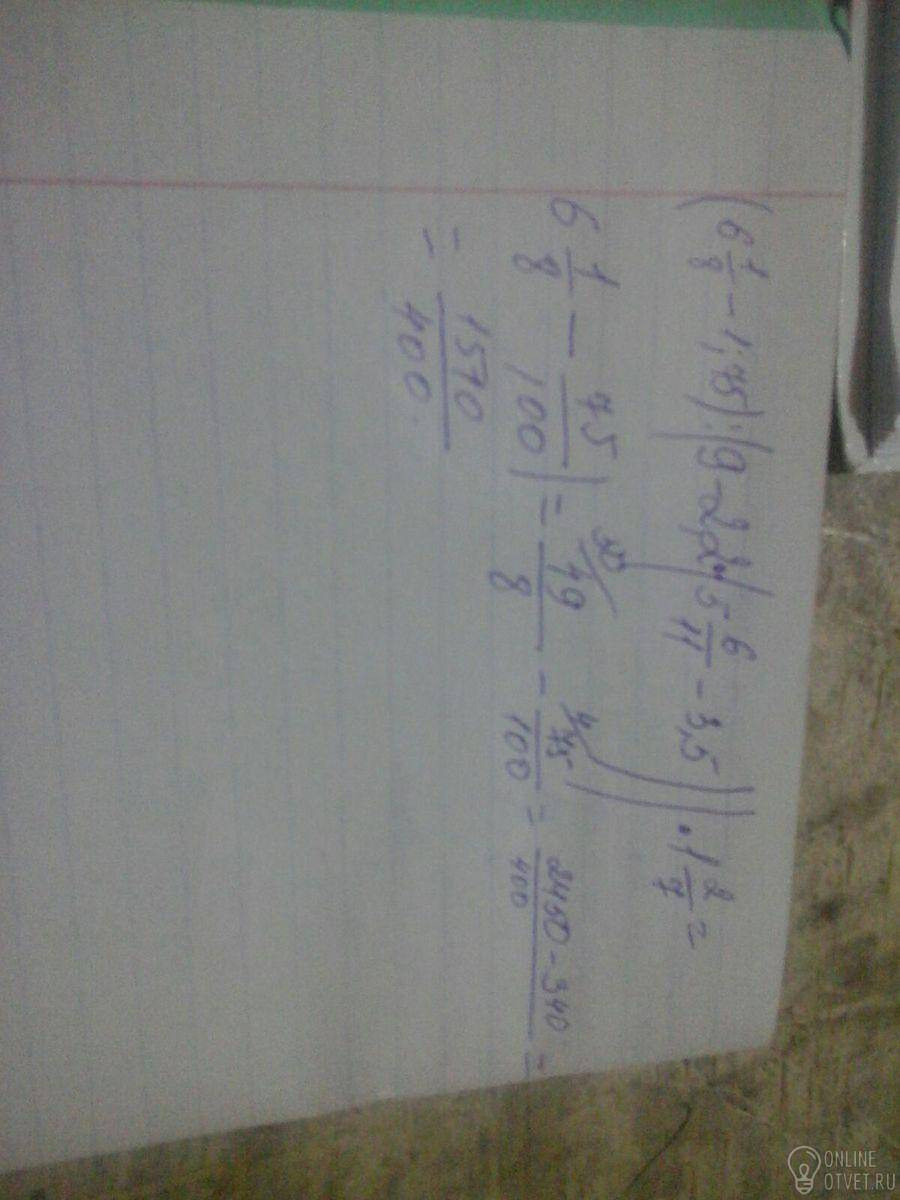 (6 1/8 - 1,75) : (9 - 2 2/4 (5 6/11 - 3,5)) · 1 2/7 =
6 1/8 - 75/100) = 49/8 - 75/100 = 2450-340/400 =
= 1570/400.
ONLINE
OTVET.RU